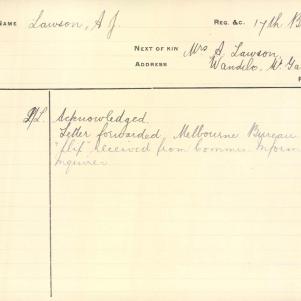 NAME Lawson, A J. REG. &C. 17th B
NEXT OF KIN Mrs A. Lawson,
ADDRESS Wandilo, Mt. Ga
P/L Acknowledged.
Letter forwarded, Melbourne Bureau
received from Commee. inform
inquirer